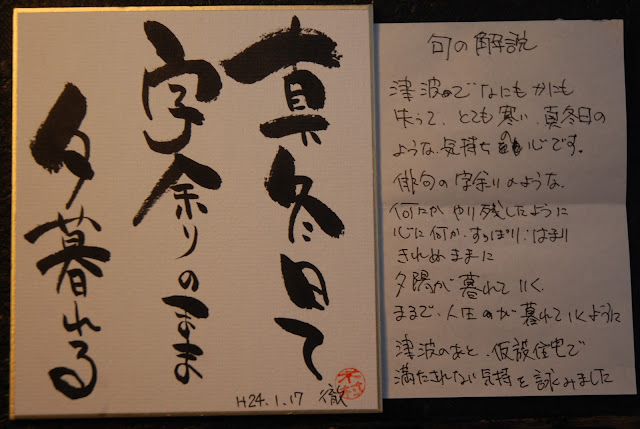 真冬日て
字余りのまま
夕暮れる
H24.1.17 徹
句の解説
津波でなにもかにも
失って、とても寒い、真冬日の
ような気持ち の心です。
俳句の字余りのような、
何だかやり残したように
心に何か、すっぽりはまり
きれぬままに
夕陽が暮れていく
まるで、人生が暮れていくように
津波のあと、仮設住宅で
満たされない気持を詠みました